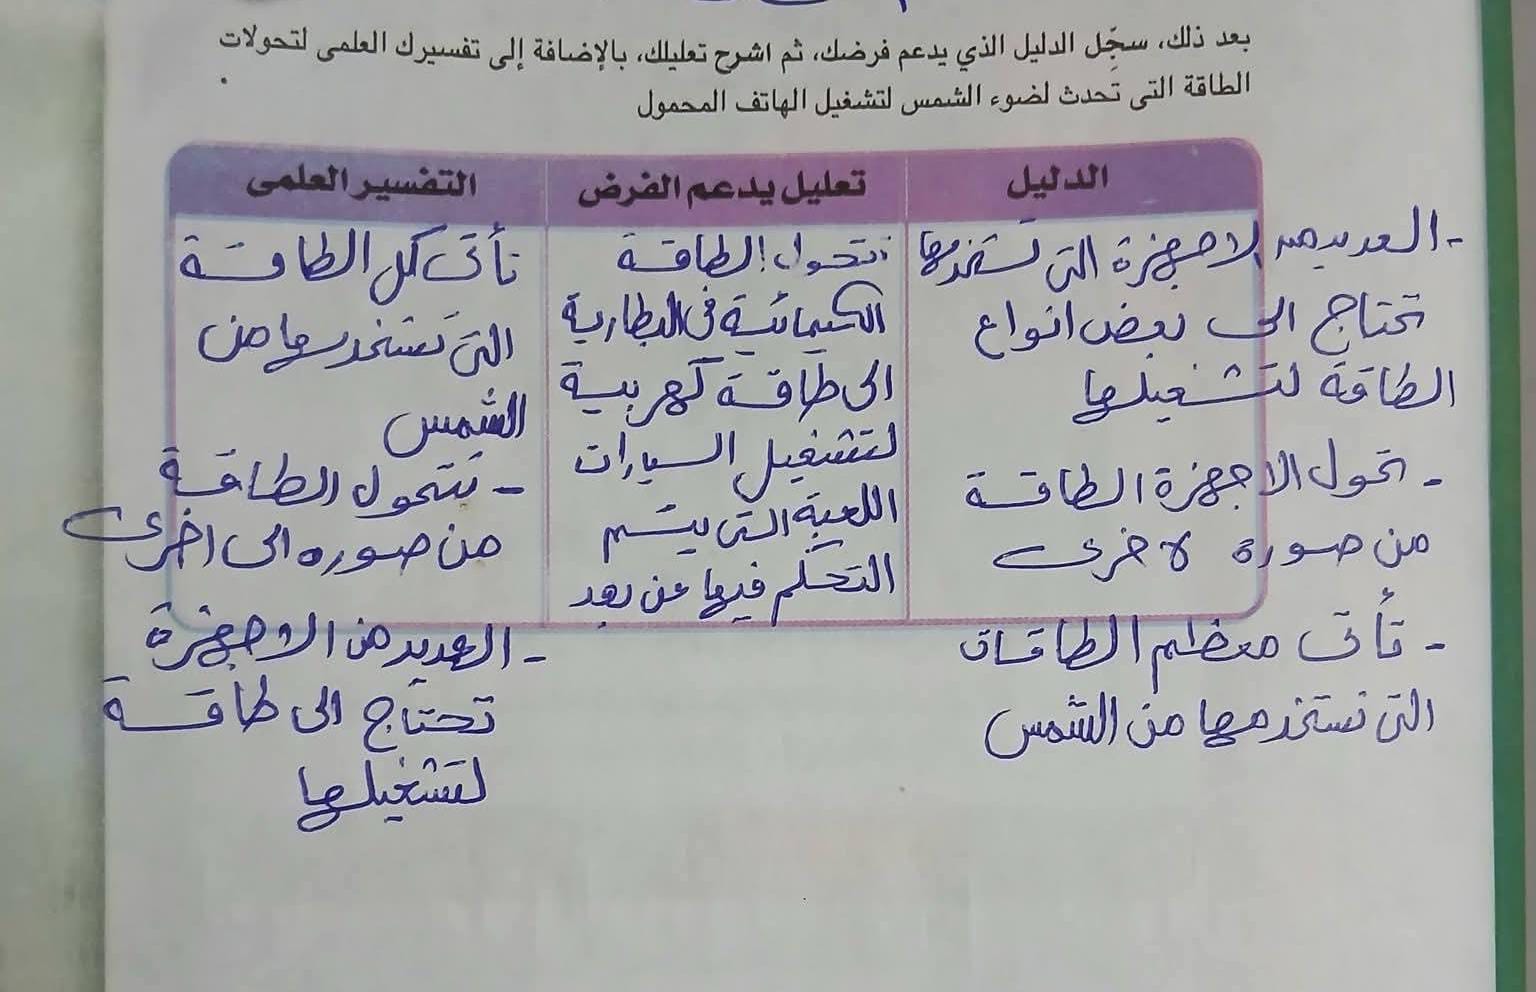 بعد ذلك، سجِّل الدليل الذي يدعم فرضك، ثم اشرح تعليلك، بالإضافة إلى تفسيرك العلمى لتحولات
الطاقة التى تَحدث لضوء الشمس لتشغيل الهاتف المحمول
الدليل
- العديد من الاجهزة التى نستخدمها
تحتاج الى بعض انواع
الطاقة لتشغيلها
- تحول الاجهزة الطاقة
من صورة لاخرى
- تأتى معظم الطاقات
التى نستخدمها من الشمس
تعليل يدعم الفرض
تتحول الطاقة
الكيمائية فى البطارية
الى طاقة كهربية
لتشغيل السيارات
اللعبة التى يتم
التحكم فيها عن بعد
التفسير العلمى
تأتى كل الطاقة
التى نستخدمها من
الشمس
- تتحول الطاقة
من صوره الى اخرى
- العديد من الاجهزة
تحتاج الى طاقة
لتشغيلها